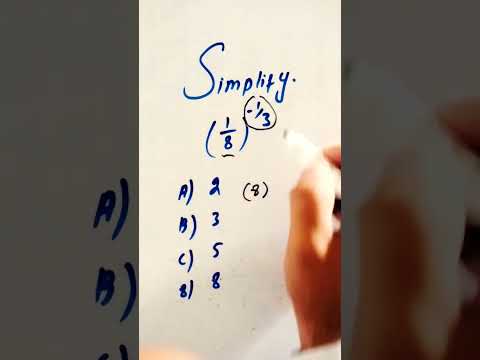 Simplify.
(1/8)^-1/3
A) 2 (8)
B) 3
C) 5
8) 8